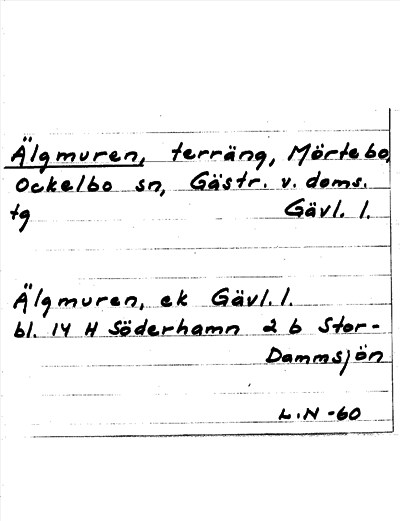 Älgmuren, terräng, Mörtebo,
Ockelbo sn, Gästr. v. doms.
tg Gävl. l.
Älgmuren, ek Gävl. l.
bl. 14 H Söderhamn 2 b Stor-
Dammsjön
L.N -60